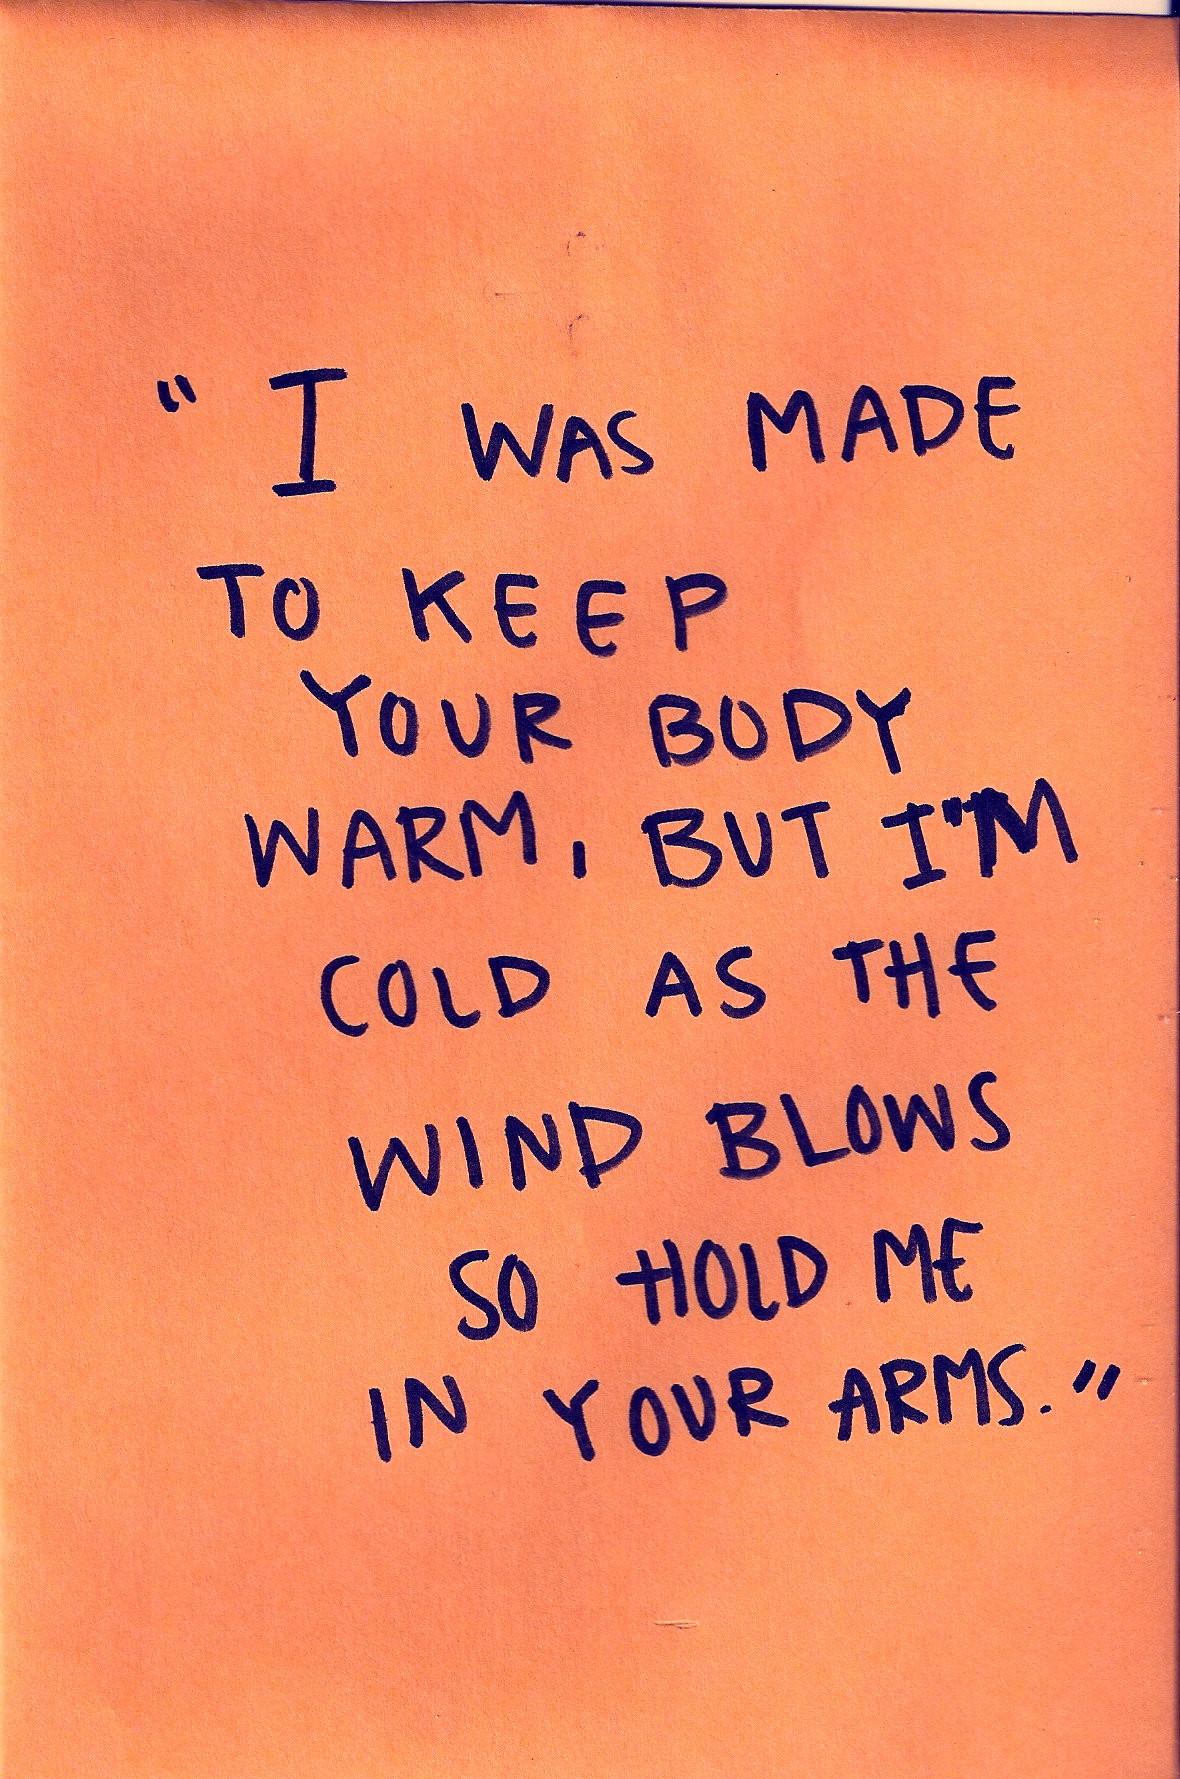 " I WAS MADE
TO KEEP
YOUR BODY
WARM, BUT I'M
COLD AS THE
WIND BLOWS
SO HOLD ME
IN YOUR ARMS."